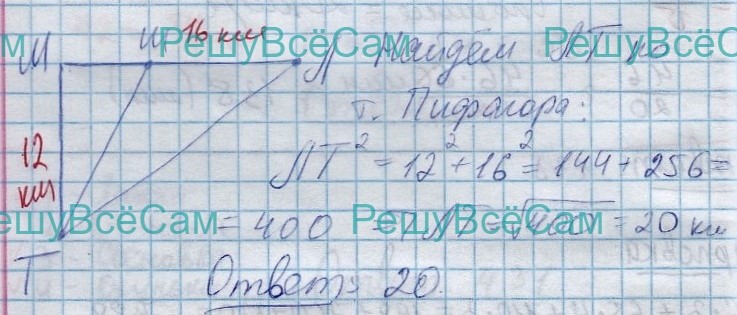 16 км
М И Л Найдём ЛТ по
т. Пифагора:
12 км
ЛТ² = 12² + 16² = 144 + 256 =
= 400 => ЛТ = √400 = 20 км
Т
Ответ: 20.
РешуВсёСам
РешуВсёС
ам
ешуВсёСам
РешуВсёСам